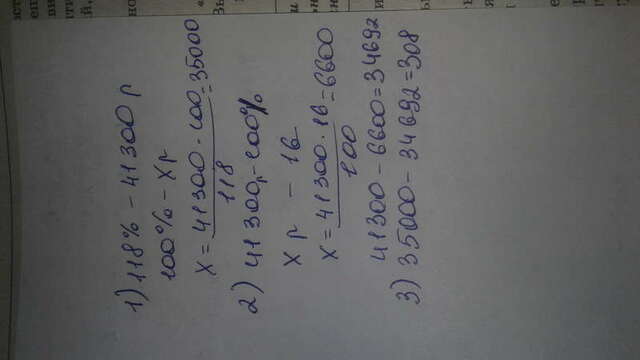 1) 118% - 41300 р
100% - х р
х = 41300 · 100 / 118 = 35000
2) 41300 р - 100%
х р - 16
х = 41300 · 16 / 100 = 6600
41300 - 6600 = 34692
3) 35000 - 34692 = 308